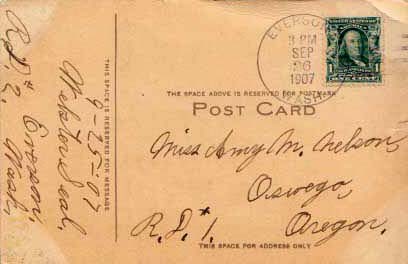 EVERSON
3 PM
SEP
26
1907
WASH.
1 1
ONE CENT
THE SPACE ABOVE IS RESERVED FOR POSTMARK
POST CARD
Miss Amy M. Nelson,
Oswego,
R.D.#1. Oregon.
THIS SPACE FOR ADDRESS ONLY
THIS SPACE IS RESERVED FOR MESSAGE
9-25-07
Everson,
Wash,
R.D.#2.